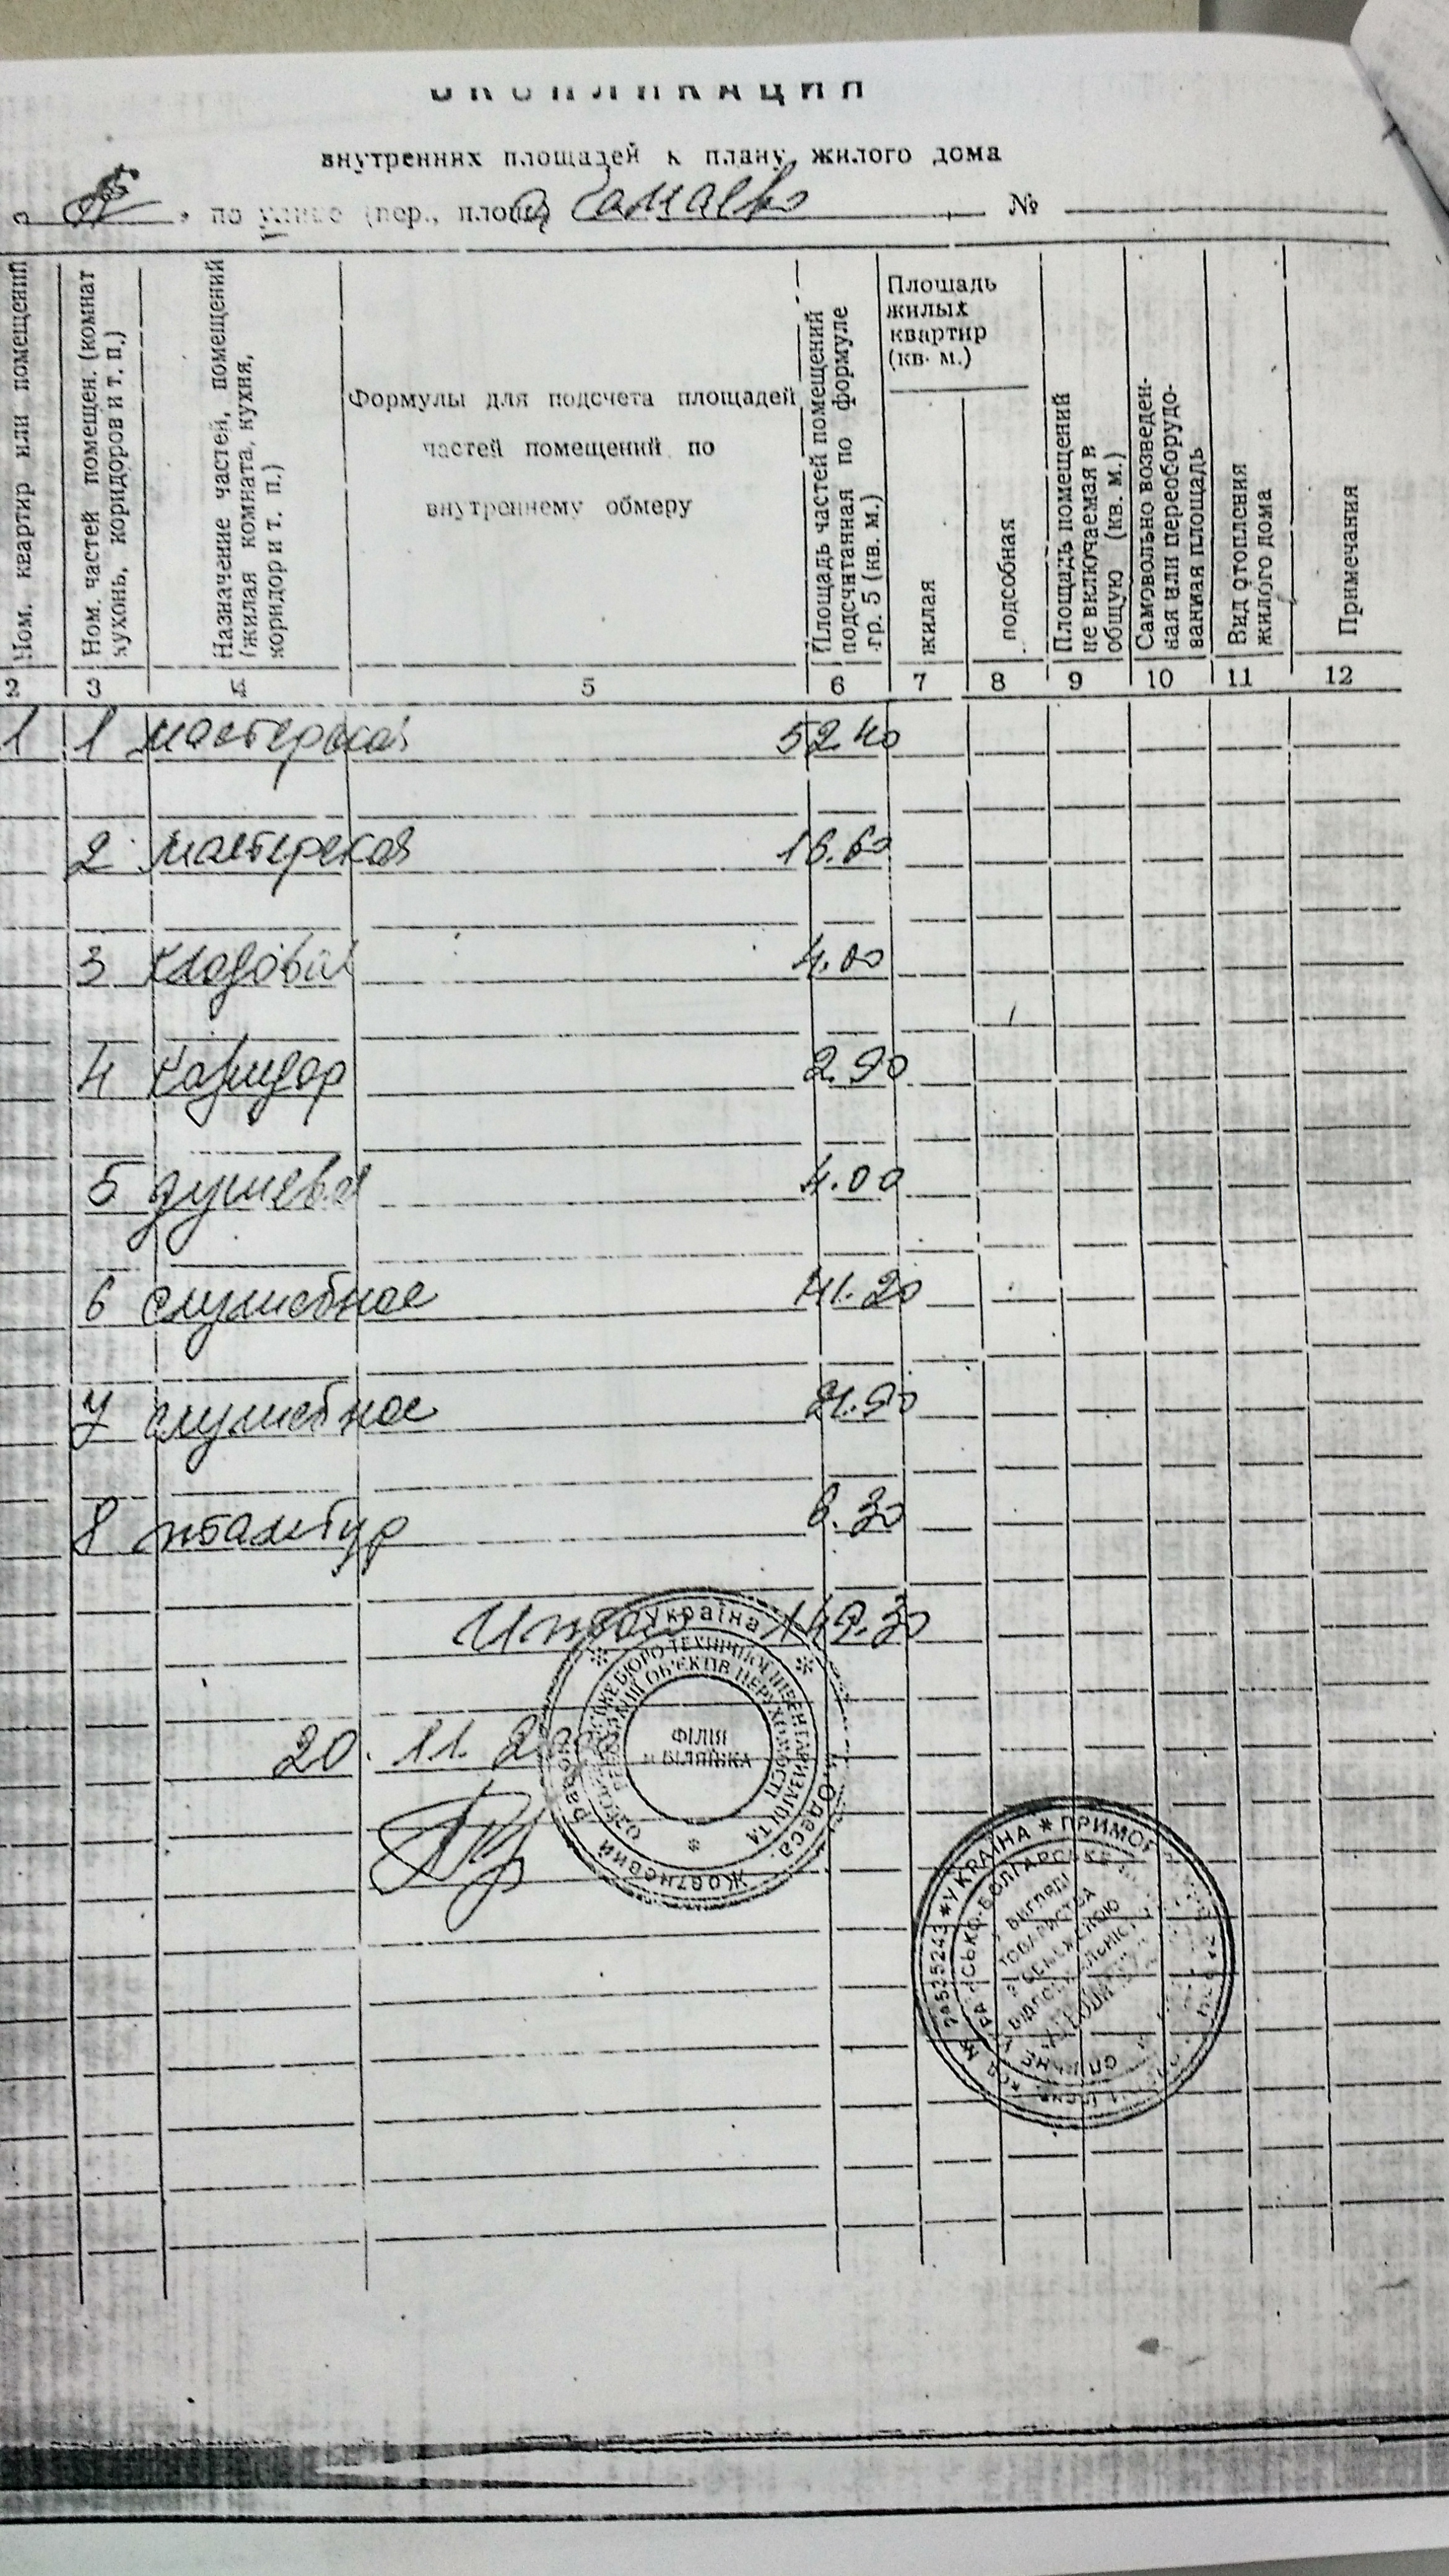 ЭКСПЛИКАЦИЯ
внутренних площадей к плану жилого дома
по улице (пер., площ. №
Ном. квартир или помещений
Ном. частей помещен. (комнат кухонь, коридоров и т. п.)
Назначение частей, помещений (жилая комната, кухня, коридор и т. п.)
Формулы для подсчета площадей
частей помещений по
внутреннему обмеру
Площадь частей помещений подсчитанная по формуле гр. 5 (кв. м.)
Площадь
жилых
квартир
(кв. м.)
жилая
подсобная
Площадь помещений не включаемая в общую (кв. м.)
Самовольно возведен-
ная или переоборудо-
ванная площадь
Вид отопления жилого дома
Примечания
2 3 4 5 6 7 8 9 10 11 12
1 1 мастерская 52.40
2 мастерская 16.60
3 кладовая 4.00
4 коридор 2.90
5 душевая 4.00
6 служебное 41.20
7 служебное 21.90
8 тамбур 6.30
Итого 149.30
20. 11.
Україна
ФІЛІЯ
м БІЛЯЇВКА
Одеса
Жовтневий район
УКРАЇНА * ПРИМОР
24525243